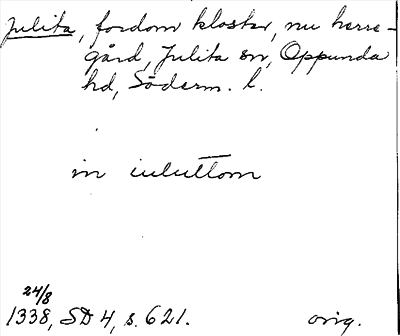 Julita, fordom kloster, nu herre-
gård, Julita sn, Oppunda
hd, Söderm. l.
in iuluttom
24/8
1338, SD 4, s. 621. orig.